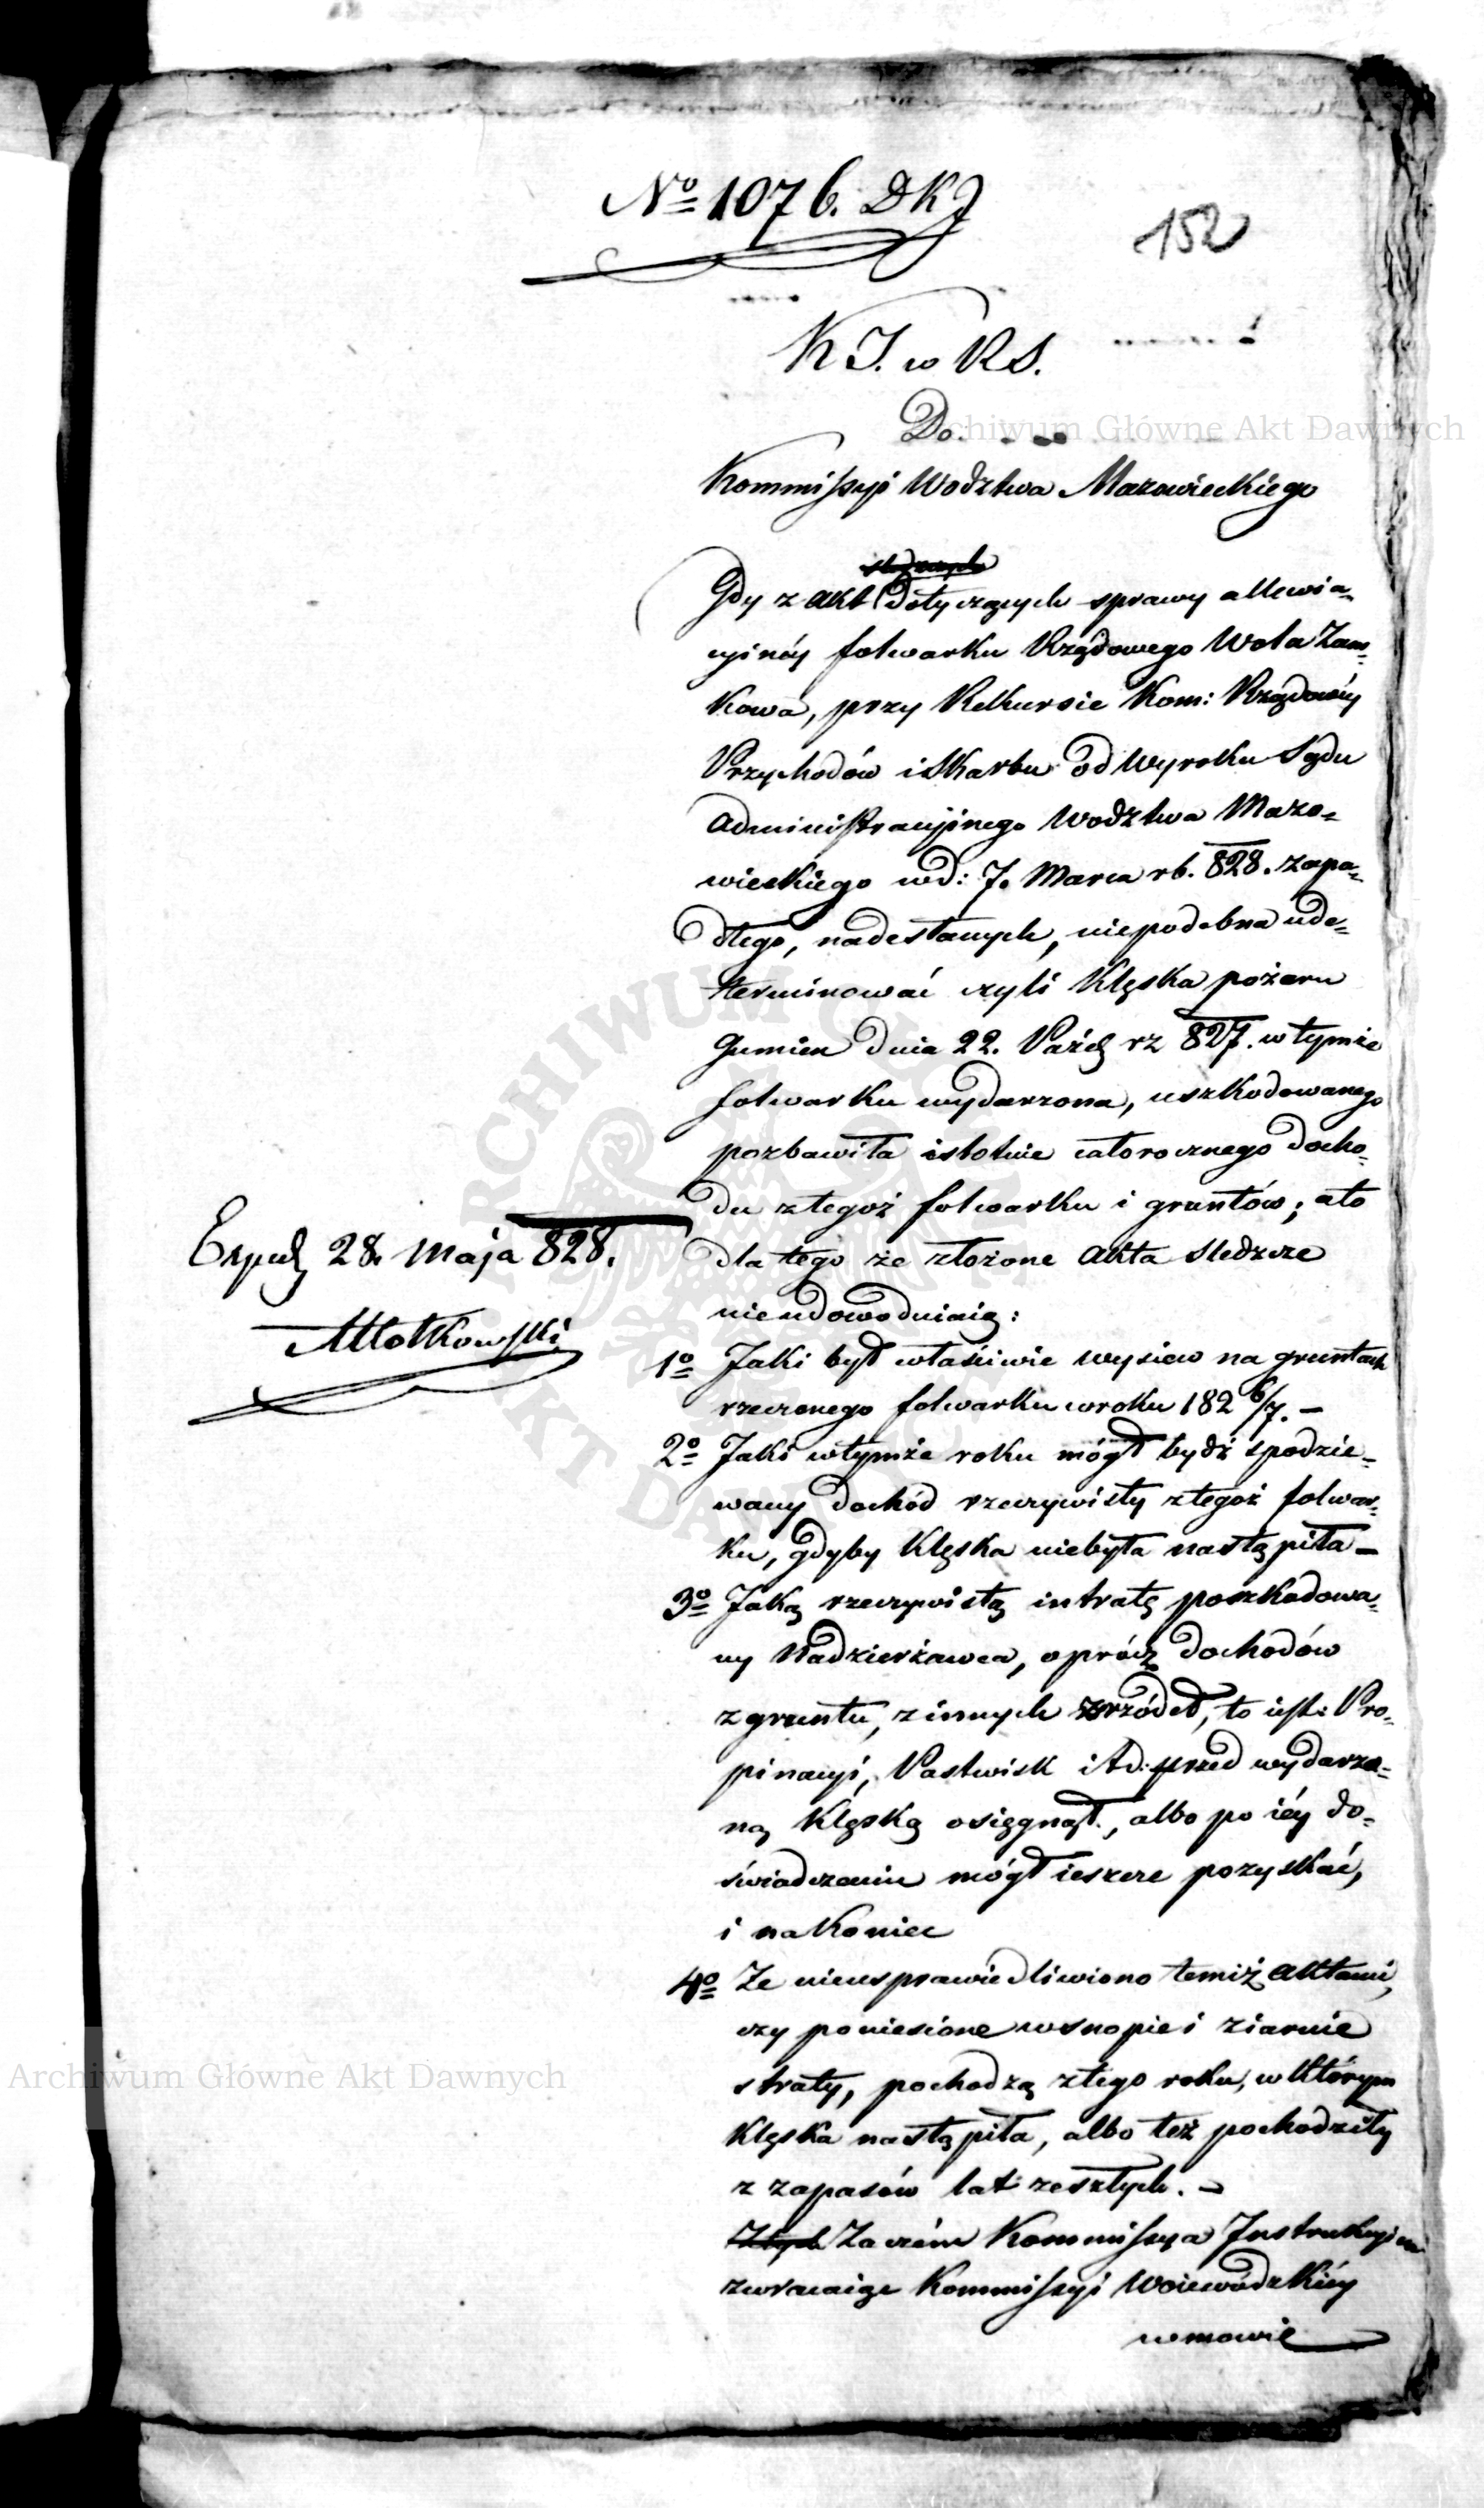 No 1076. DKJ
152
K I. w RS.
Do.
Kommissyi Wodztwa Mazowieckiego
Gdy z akt dotyczących sprawy allewia-
cyinéy folwarku Rządowego Wola Zam-
kowa, przy Rekursie Kom: Rządowéy
Przychodów i Skarbu od Wyroku Sądu
Administracyjnego Wodztwa Mazo-
wieckiego w d: 7. Marca rb. 828. zapa-
dłego, nadesłanych, niepodobna ude-
terminować czyli Klęska pożaru
Gumien dnia 22. Paźdz rz 827. w tymże
folwarku wydarzona, uszkodowanego
pozbawiła istotnie całorocznego docho-
du z tegoż folwarku i gruntów; a to
dla tego że złożone Akta Sledzcze
nieudowodniaią:
Exped 28. Maja 828.
Młotkowski
1o Jaki był właściwie wysiew na gruntach
rzeczonego folwarku w roku 182 6/7. –
2o Jaki w tymże roku mógł bydź spodzie-
wany dochód rzeczywisty z tegoż folwar-
ku, gdyby Klęska niebyła nastąpiła –
3o Jaką rzeczywistą intratę poszkodowa-
ny Nadzierżawca, oprócz dochodów
z gruntu, z innych zrzódeł, to iest: Pro-
pinacyi, Pastwisk i td: przed wydarzo-
ną Klęską osięgnął, albo po iéy do-
świadczeniu mógł ieszcze pozyskać,
i nakoniec
4o Ze nieusprawiedliwiono temiż Aktami,
czy poniesione w snopie i ziarnie
straty, pochodzą z tego roku, w którym
Klęska nastąpiła, albo też pochodziły
z zapasów lat zeszłych. –
Z tych Zaczém Kommissya Instrukcyina
zwracaiąc Kommissyi Woiewódzkiéy
w mowie
Archiwum Główne Akt Dawnych
Archiwum Główne Akt Dawnych
ARCHIWUM GŁÓWNE AKT DAWNYCH